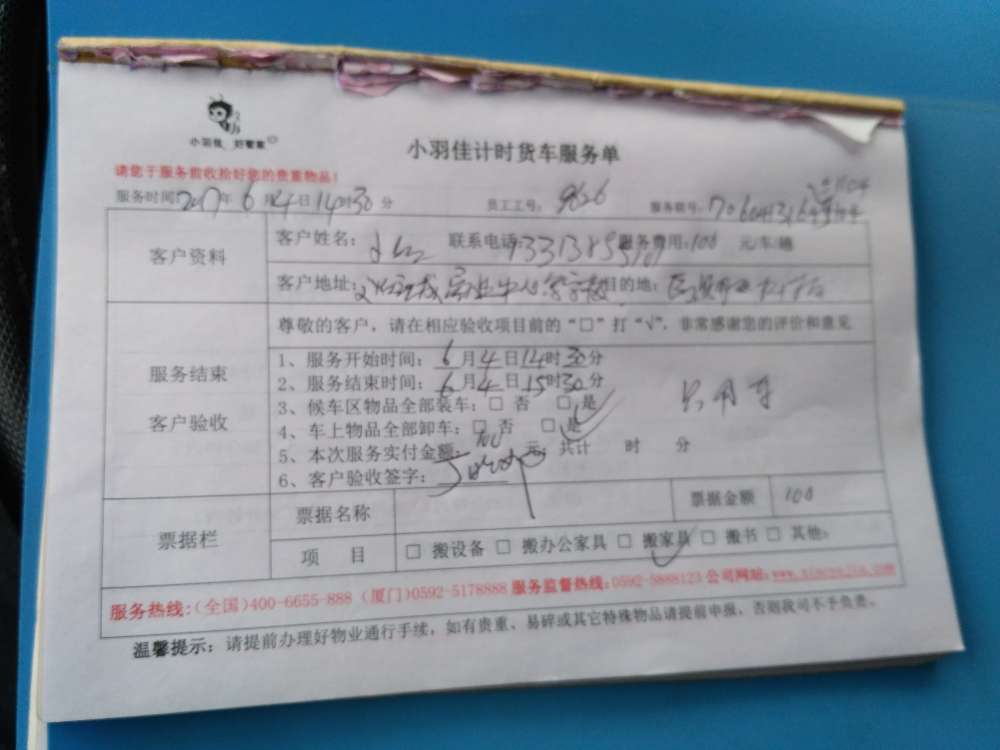 小羽佳 好管家
小羽佳计时货车服务单
请您于服务前收拾好您的贵重物品!
服务时间:2017年6月4日14时30分 员工工号:9626 服务联号:
客户资料
客户姓名: 联系电话: 服务费用:100 元/车/趟
客户地址: 目的地:
服务结束
客户验收
尊敬的客户,请在相应验收项目前的“□”打“√”,非常感谢您的评价和意见
1、服务开始时间:6月4日14时30分
2、服务结束时间:6月4日15时30分
3、候车区物品全部装车:□ 否 □ 是
4、车上物品全部卸车:□ 否 □ 是
只用车
5、本次服务实付金额: 元,共计 时 分
6、客户验收签字:
票据栏
票据名称 票据金额 100
项 目 □ 搬设备 □ 搬办公家具 □ 搬家具 □ 搬书 □ 其他:
服务热线:(全国)400-6655-888 (厦门)0592-5178888 服务监督热线:0592-5888123 公司网站:
温馨提示:请提前办理好物业通行手续,如有贵重、易碎或其它特殊物品请提前申报,否则我司不予负责。